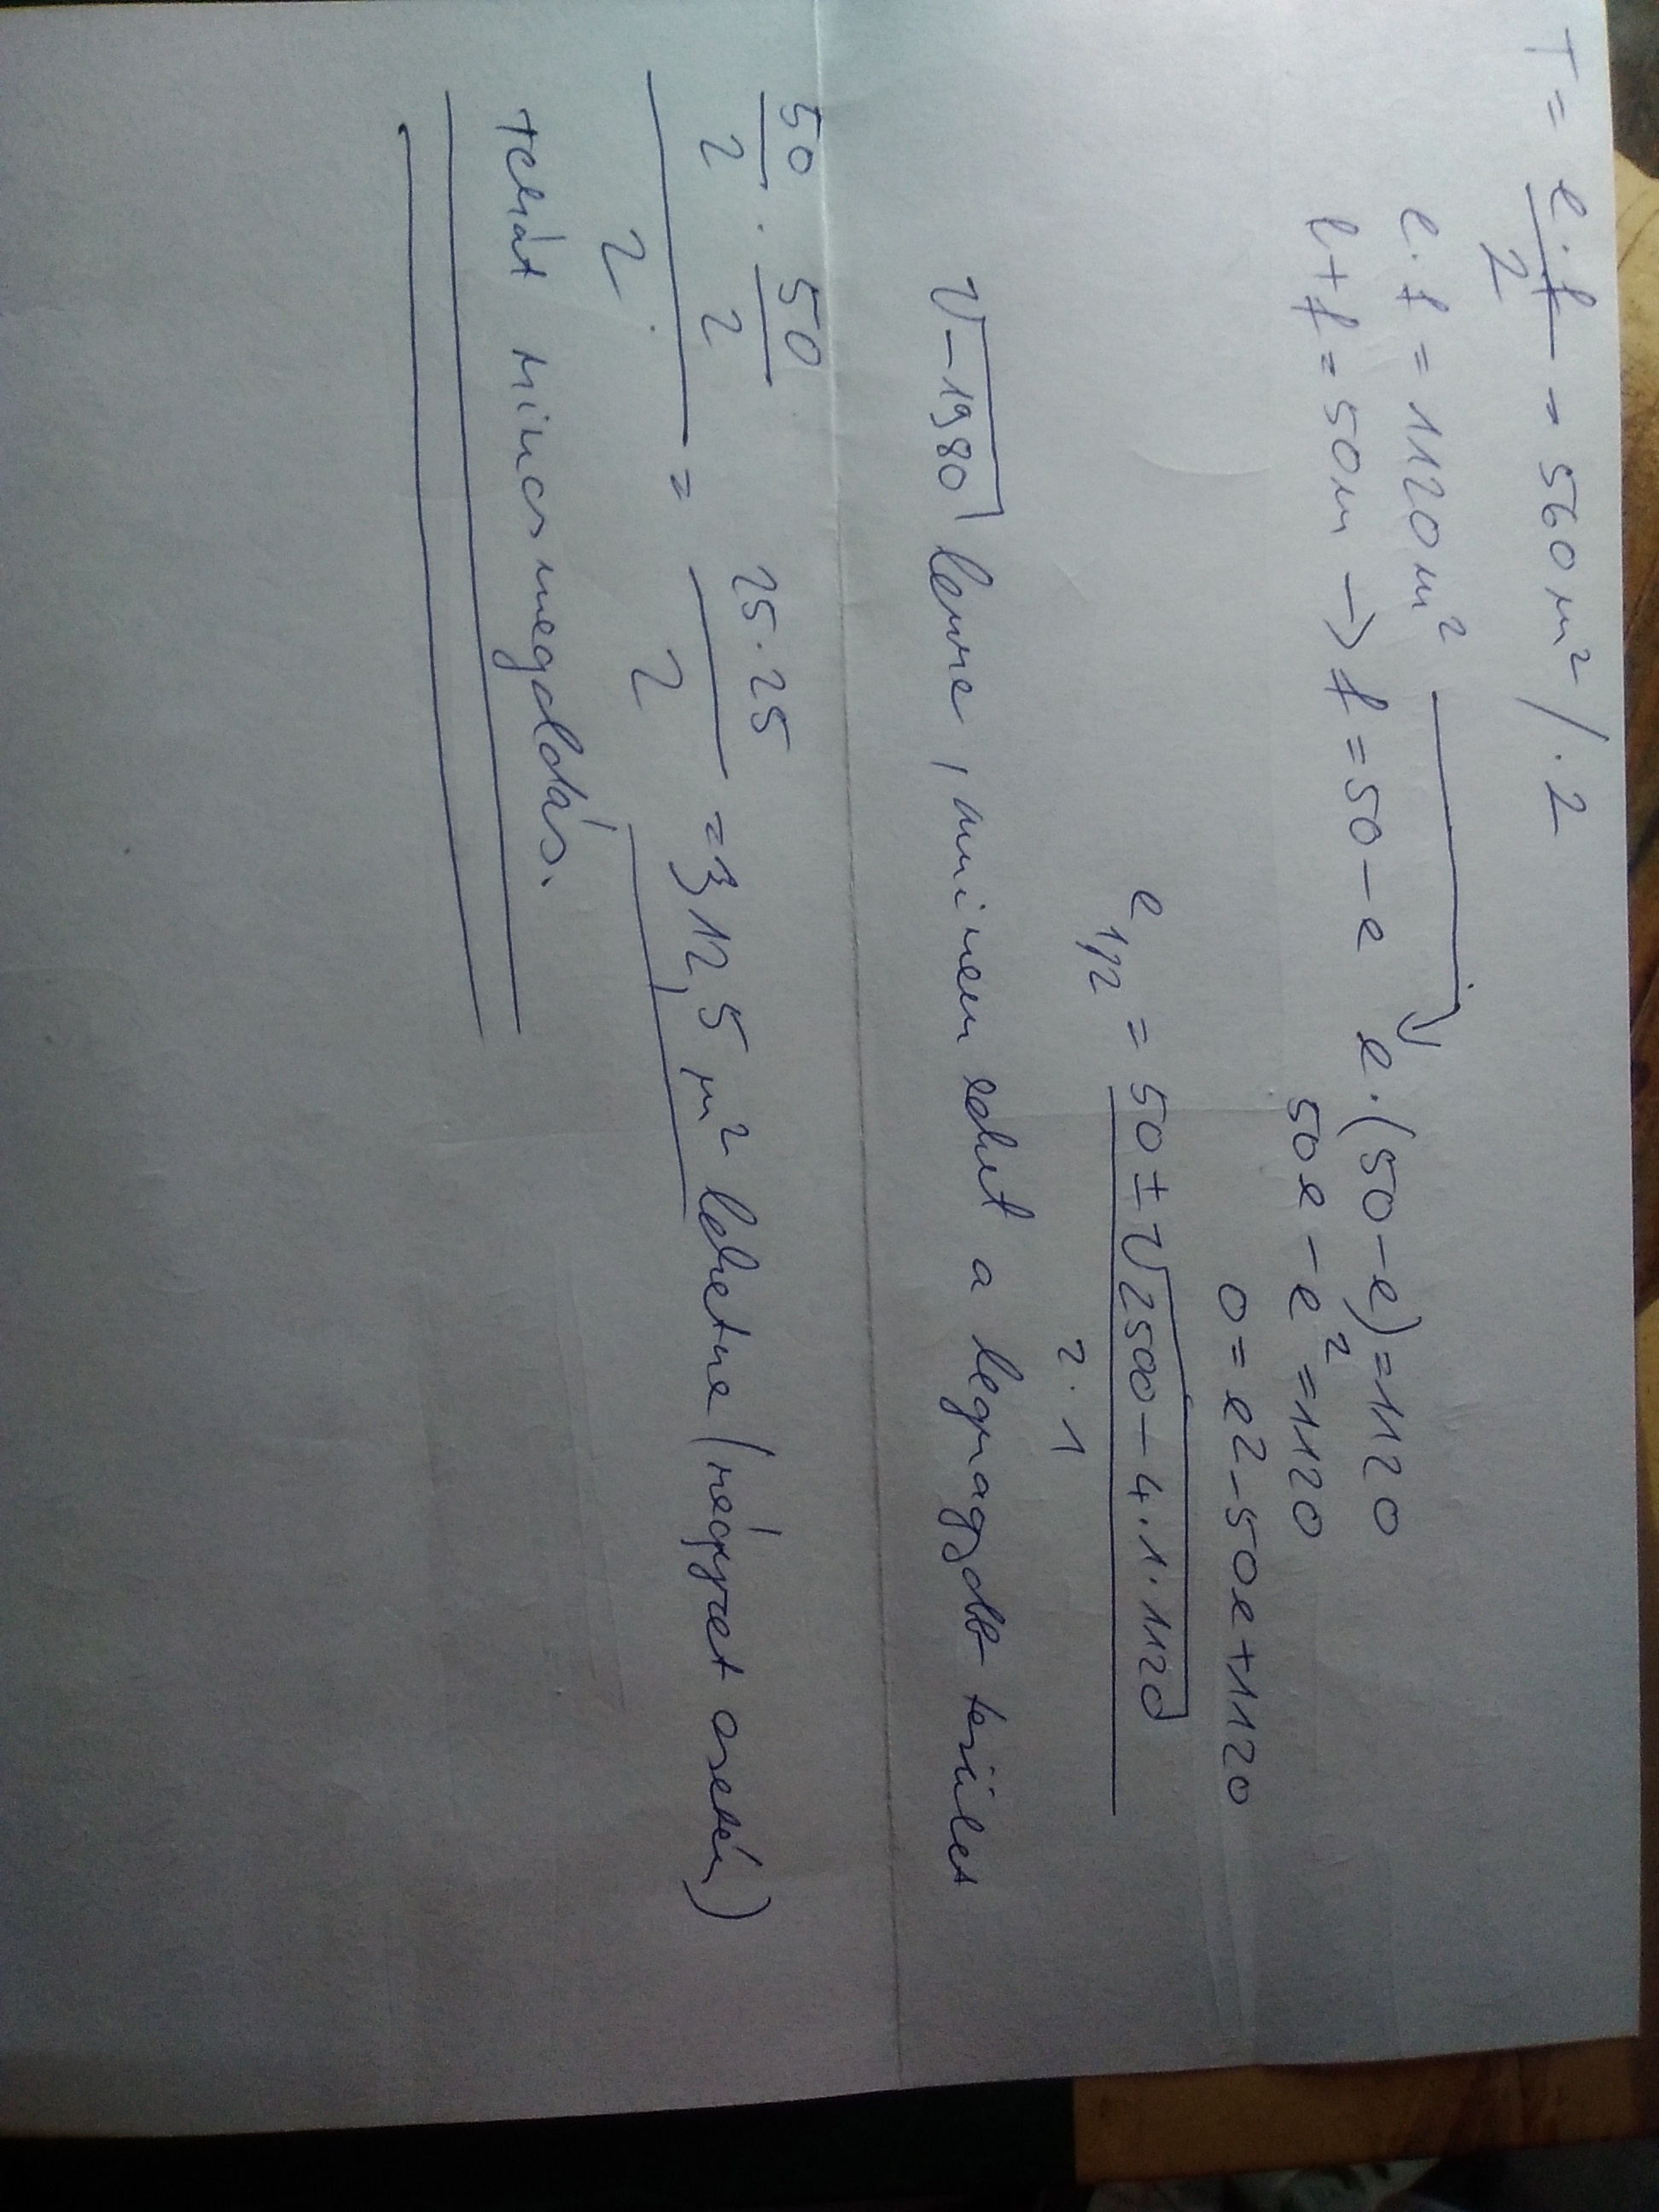 T = e·f/2 = 560 m² /·2
e·f = 1120 m²
e+f = 50m → f = 50-e e·(50-e)=1120
50e - e² = 1120
0 = e² - 50e + 1120
e 1,2 = 50 ± √2500 - 4·1·1120 / 2·1
√-1980 lenne, ami nem lehet a legnagyobb terület
50/2 · 50/2 / 2 = 25·25 / 2 = 312,5 m² lehetne (négyzet esetén)
tehát nincs megoldás.